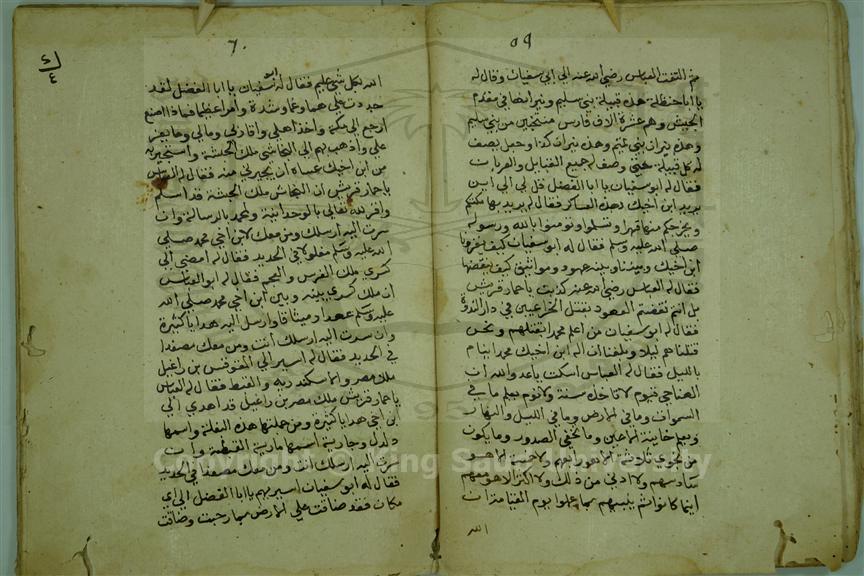 ٥٩
ثم التفت العباس رضي الله عنه الي ابي سفيان وقال له
يا ابا حنظلة هذه قبيلة بني سليم ونيرانها في مقدم
الجيش وهم عشرة الاف فارس منتخبين من بني سليم
وهذه نيران بني تميم وهذه نيران كذا وجعل يصف
له كل قبيلة حتي وصف له جميع القبايل والعربان
فقال له ابو سفيان يا ابا الفضل قل لي الي اين
يريد ابن اخيك بهذه العساكر فقال له يريد بها مكتكم
ويخرجكم منها قهرا وتسلموا وتومنوا بالله ورسوله
صلي الله عليه وسلم فقال له ابو سفيان كيف يغزونا
ابن اخيك وبيننا وبينه عهود ومواثيق كيف ينقضها
فقال له العباس رضي الله عنه كذبت يا حمار قريش
بل انتم نقضتم العهود بقتل الخزاعيين في دار الندوة
فقال له ابو سفيان من اعلم محمدا بقتلهم ونحن
قتلناهم ليلا وبلغنا ان اله ابن اخيك محمد اينام
بالليل فقال له العباس اسكت يا عدو الله ان
الهنا حي قيوم لا تاخذه سنة ولا نوم يعلم ما في
السموات وما في الارض وما في الليل والنهار
ويعلم خاينة الاعين وما تخفي الصدور وما يكون
من نجوي ثلاثة الا هو رابعهم ولا خمسة الا هو
سادسهم ولا ادني من ذلك ولا اكثر الا هو معهم
اينما كانوا ثم ينبيهم بما عملوا يوم القيامة ان
الله
٦٠
٤
٤
الله بكل شي عليم فقال له ابو سفيان يا ابا الفضل لقد
علي هما وغما وشدة وامرا عظيما فماذا اصنع
ارجع الي مكة واخذ اهلي واقاربي ومالي وما يعز
علي واذهب بهم الي النجاشي ملك الحبشة واستجير به
من ابن اخيك عساه ان يجيرني منه فقال له العباس
يا حمار قريش ان النجاشي ملك الحبشة قد اسلم
واقر لله تعالي بالوحدانية ولمحمد بالرسالة وان
سرت اليه ارسلك ومن معك لابن اخي محمد صلي
الله عليه وسلم مغلولا في الحديد فقال له امضي الي
كسري ملك الفرس والعجم فقال له العباس
ان ملك كسري بينه وبين ابن اخي محمد صلي الله
عليه وسلم عهدا وميثاقا وارسل اليه هدايا كثيرة
وان سرت اليه ارسلك انت ومن معك مصفدا
في الحديد فقال له اسير الي المقوقس بن راعيل
ملك مصر والاسكندرية والقبط فقال له العباس
يا حمار قريش ملك مصر بن راعيل قد اهدي الي
بن اخي هدايا كثيرة ومن جملتها هذه البغلة واسمها
دلدل وجارية اسمها مارية القبطية وان
سرت اليه ارسلك انت ومن معك مصفدا في الحديد
فقال له ابو سفيان اسير بهم يا ابا الفضل الي اي
مكان فقد ضاقت علي الارض بما رحبت وضاقت
Copyright © King Saud University